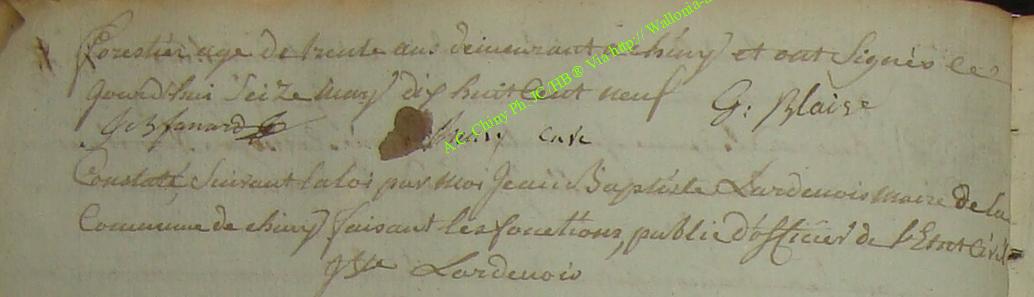 forestier age de trente ans demeurant a chiny et ont Signés ce
jourd'hui Seize may dix huit Cent neuf G: Blaise
henry
Constaté Suivant la loi par moi Jean Baptiste Lardenois maire de la
Commune de chiny faisant les fonctions, public d'officier de l'Etat Civil
Lardenois
A.C. Chiny Ph JC/HB ® Via http:// Wallonia-